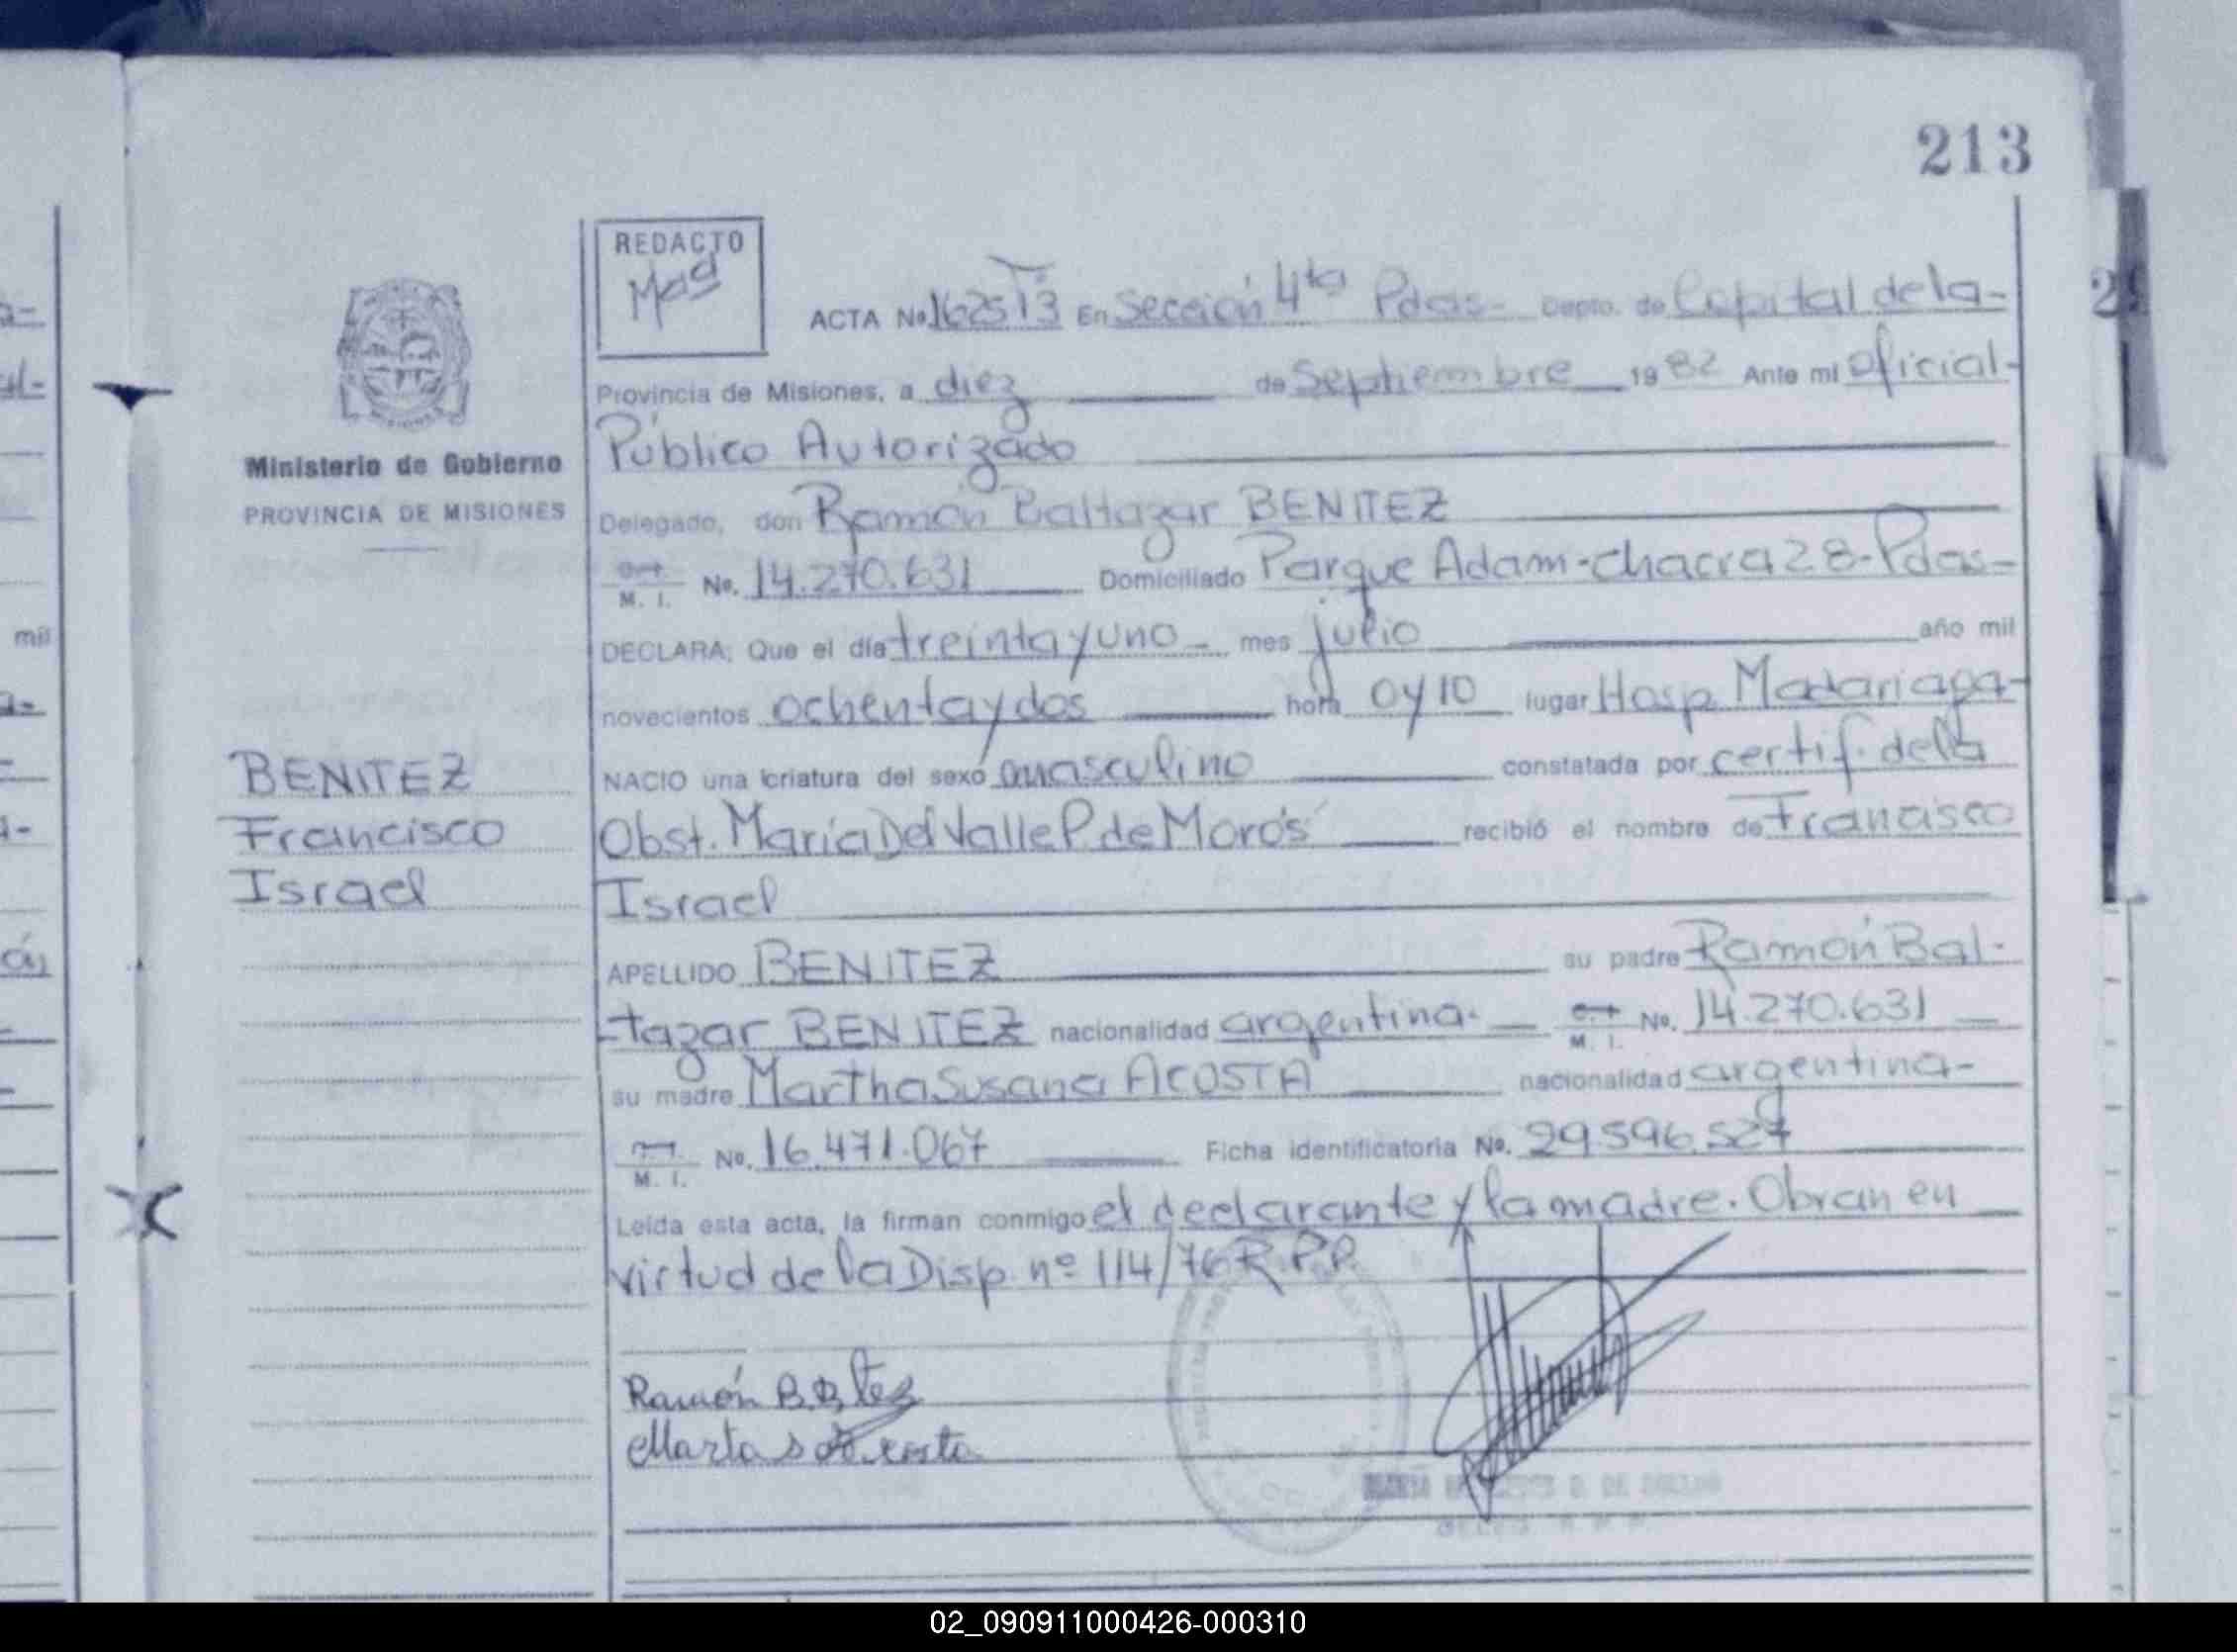 213
REDACTO
ACTA No 1625 T3 En Sección 4ta Pdas- Depto. de Capital de la-
Provincia de Misiones, a diez de Septiembre 1982 Ante mi Oficial-
Público Autorizado
Ministerio de Gobierno
PROVINCIA DE MISIONES
Delegado, don Ramón Baltazar BENITEZ
M. I. No. 14.270.631 Domiciliado Parque Adam-chacra 28-Pdas-
DECLARA: Que el día treinta y uno- mes julio año mil
novecientos ochenta y dos hora 0 y 10 lugar Hosp. Madariaga-
NACIO una criatura del sexo masculino constatada por certif. de la
Obst. María Del Valle P. de Moro's recibió el nombre de Francisco
Israel
BENITEZ
Francisco
Israel
APELLIDO BENITEZ su padre Ramón Bal-
-tazar BENITEZ nacionalidad argentina- M. I. No. 14.270.631
su madre Martha Susana ACOSTA nacionalidad argentina-
M. I. No. 16.471.067 Ficha identificatoria No. 29.596.527
Leída esta acta, la firman conmigo el declarante y la madre. Obran en
virtud de la Disp. nº 114/76 R.P.P.
Ramón B.
Marta S Acosta
mil
02_090911000426-000310